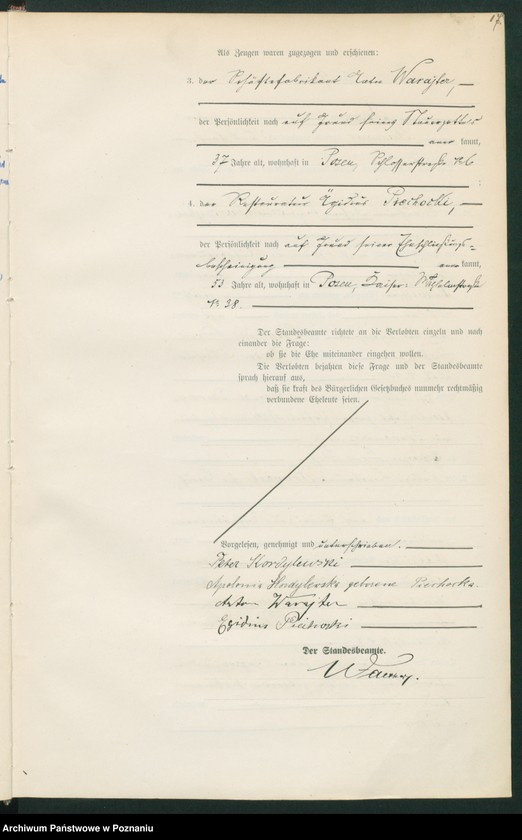 17.
Als Zeugen waren zugezogen und erschienen:
3. der Schäftefabrikant Anton Warajter, —
der Persönlichkeit nach auf Grund seines Steuerzettels
aner kannt,
37 Jahre alt, wohnhaft in Posen, Schlosserstraße № 6
4. der Restaurateur Ägidius Piechocki, —
der Persönlichkeit nach auf Grund seiner Eheschließungs-
bescheinigung aner kannt,
53 Jahre alt, wohnhaft in Posen, Kaiser-Wilhelmstraße
№ 38.
Der Standesbeamte richtete an die Verlobten einzeln und nach
einander die Frage:
ob sie die Ehe miteinander eingehen wollen.
Die Verlobten bejahten diese Frage und der Standesbeamte
sprach hierauf aus,
daß sie kraft des Bürgerlichen Gesetzbuches nunmehr rechtmäßig
verbundene Eheleute seien.
Vorgelesen, genehmigt und unterschrieben.
Peter Kordylewski
Apolonia Kordylewska geborene Piechocka.
Anton Warajter
Egidius Piechocki
Der Standesbeamte.
Archiwum Państwowe w Poznaniu